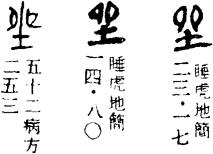 睡虎地簡
二三·一七
睡虎地簡
一四·八〇
五十二病方
二五三